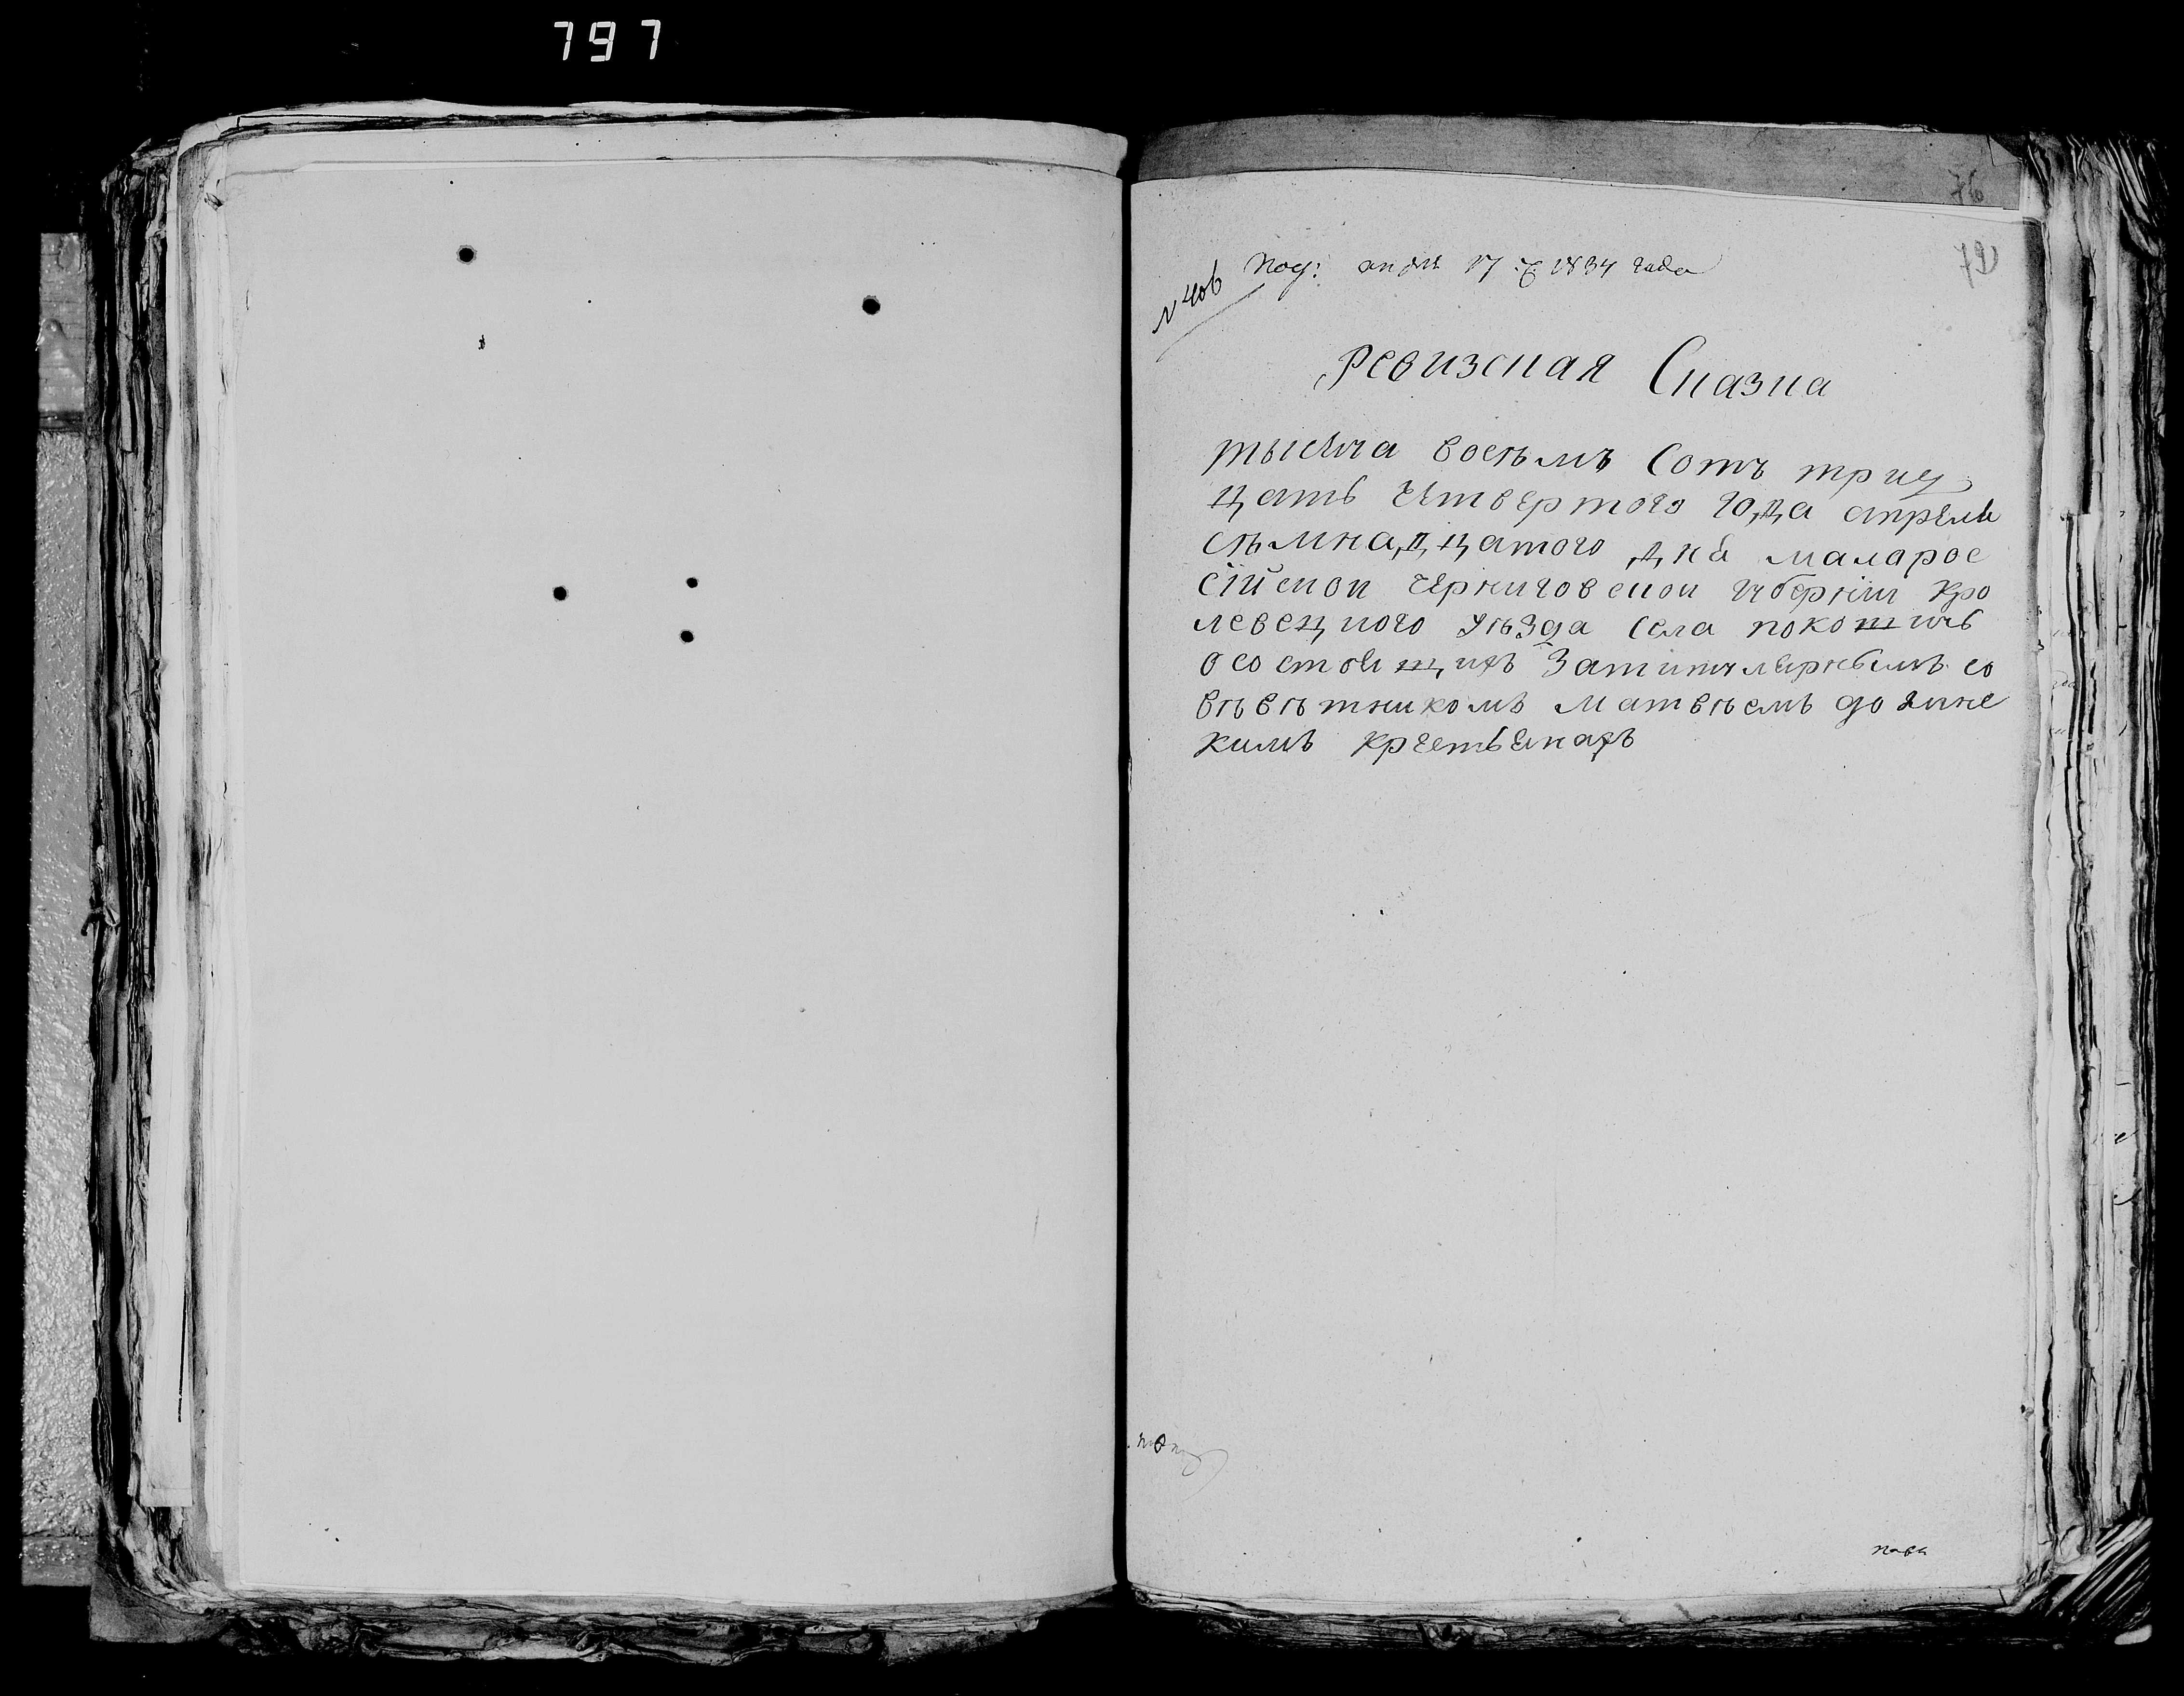 797
76
79
№ 406
Под: апреля 17 д 1834 года
Ревизская Сказка
тысяча восѣмъ Сотъ трид
цать четвертого года апреля
сѣмнадцатого дня малорос
сійской черниговской губерніи Кро
левецкого уѣзда села покошичь
о состоящихъ Затитулярнымъ со
вѣвѣтникомъ матвѣемъ долинс
кимъ крестьянахъ